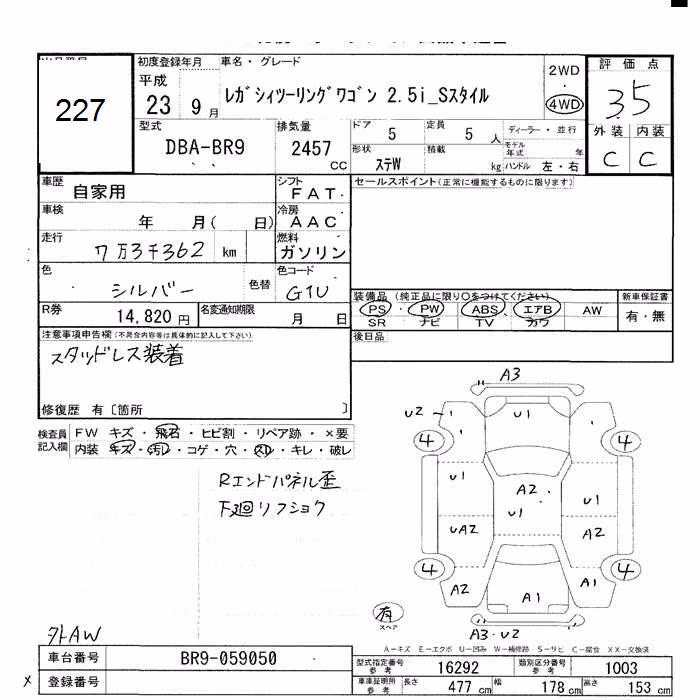 227
初度登録年月
平成
23 9月
車名・グレード
レガシィツーリングワゴン 2.5i_Sスタイル
2WD
・
4WD
評価点
35
外装 内装
C C
型式
DBA-BR9
排気量
2457
CC
ドア
5
定員
5 人
ディーラー・並行
モデル年式 年
形状
ステW
積載
kg
ハンドル 左・右
車歴
自家用
シフト
FAT
セールスポイント(正常に機能するものに限ります)
車検
年 月( 日)
冷房
AAC
走行
7万3千362 km
燃料
ガソリン
色
シルバー
色替
色コード
G1U
R券
14,820円
名変通知期限
月 日
装備品 (純正品に限り○をつけてください)
PS・PW ABS・エアB AW
SR ナビ TV カワ
新車保証書
有・無
注意事項申告欄(不具合内容等は具体的に記入して下さい)
スタッドレス装着
後日品
修復歴 有〔箇所 〕
検査員記入欄
FW キズ・飛石・ヒビ割・リペア跡・×要
内装 キズ・汚レ・コゲ・穴・スレ・キレ・破レ
Rエンドパネル歪
下廻リフショク
A3
U2
U1
4 4
U1
A2
U1
U1
UA2
A2
4 4
A2
A1
A1
有
スペア
A3・U2
外AW
A-キズ E-エクボ U-凹み W-補修跡 S-サビ C-腐食 XX-交換済
車台番号
BR9-059050
型式指定番号
参考
16292
類別区分番号
参考
1003
× 登録番号
車車証明所
参考
長さ 477 cm
幅 178 cm
高さ 153 cm